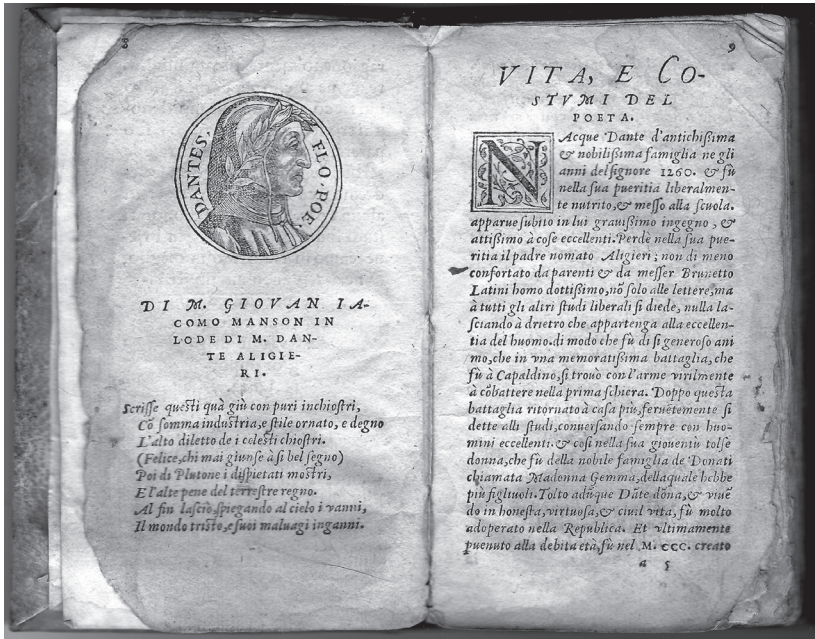 8
DANTES, FLO. POE.
DI M. GIOVAN IA-
COMO MANSON IN
LODE DI M. DAN-
TE ALIGIE-
RI.
Scrisse questi quà giù con puri inchiostri,
Cō somma industria, e stile ornato, e degno
L'alto diletto de i celesti chiostri.
(Felice, chi mai giunse à sì bel segno)
Poi di Plutone i dispietati mostri,
E l'alte pene del terrestre regno.
Al fin lasciò, spiegando al cielo i vanni,
Il mondo tristo, e suoi maluagi inganni.
9
VITA, E CO-
STVMI DEL
POETA.
NAcque Dante d'antichißima
& nobilißima famiglia ne gli
anni del signore 1260. & fù
nella sua pueritia liberalmen-
te nutrito, & messo alla scuola.
apparue subito in lui grauißimo ingegno, &
attißimo à cose eccellenti. Perdè nella sua pue-
ritia il padre nomato Aligieri; non di meno
confortato da parenti & da messer Brunetto
Latini homo dottißimo, nō solo alle lettere, ma
à tutti gli altri studi liberali si diede, nulla la-
sciando à drietro che appartenga alla eccellen-
tia del huomo. di modo che fù di sì generoso ani
mo, che in vna memoratißima battaglia, che
fù à Capaldino, si trouò con l'arme virilmente
à cōbattere nella prima schiera. Doppo questa
battaglia ritornato à casa più, feruētemente si
dette alli studi, conuersando sempre con huo-
mini eccellenti. & così nella sua giouentù tolse
donna, che fù della nobile famiglia de Donati
chiamata Madonna Gemma, dellaquale hebbe
più figliuoli. Tolto adūque Dāte dōna, & viuē
do in honesta, virtuosa, & ciuil vita, fù molto
adoperato nella Republica. Et vltimamente
puenuto alla debita età, fù nel M. CCC. creato
A 5